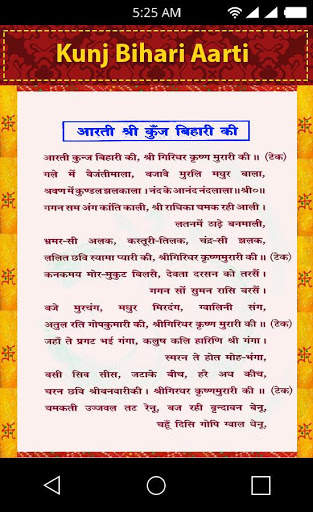 5:25 AM
Kunj Bihari Aarti
आरती श्री कुँज बिहारी की
आरती कुन्ज बिहारी की, श्री गिरिधर कृष्ण मुरारी की॥ (टेक)
गले में बैजंतीमाला, बजावे मुरलि मधुर बाला,
श्रवण में कुण्डल झलकाला। नंद के आनंद नंदलाला॥श्री०॥
गगन सम अंग कांति काली, श्री राधिका चमक रही आली।
लतनमें ठाढ़े बनमाली,
भ्रमर-सी अलक, कस्तूरी-तिलक, चंद्र-सी झलक,
ललित छवि स्यामा प्यारी की, श्रीगिरधरकृष्णमुरारी की॥ (टेक)
कनकमय मोर-मुकुट बिलसै, देवता दरसन को तरसैं।
गगन सों सुमन रासि बरसैं।
बजे मुरचंग, मधुर मिरदंग, ग्वालिनी संग,
अतुल रति गोपकुमारी की, श्रीगिरधर कृष्ण मुरारी की॥ (टेक)
जहाँ ते प्रगट भई गंगा, कलुष कलि हारिणि श्री गंगा।
स्मरन ते होत मोह-भंगा,
बसी सिव सीस, जटाके बीच, हरै अघ कीच,
चरन छवि श्रीबनवारीकी। श्रीगिरधर कृष्णमुरारी की॥ (टेक)
चमकती उज्जवल तट रेनू, बज रही वृन्दावन बेनू,
चहूँ दिसि गोपि ग्वाल धेनू,